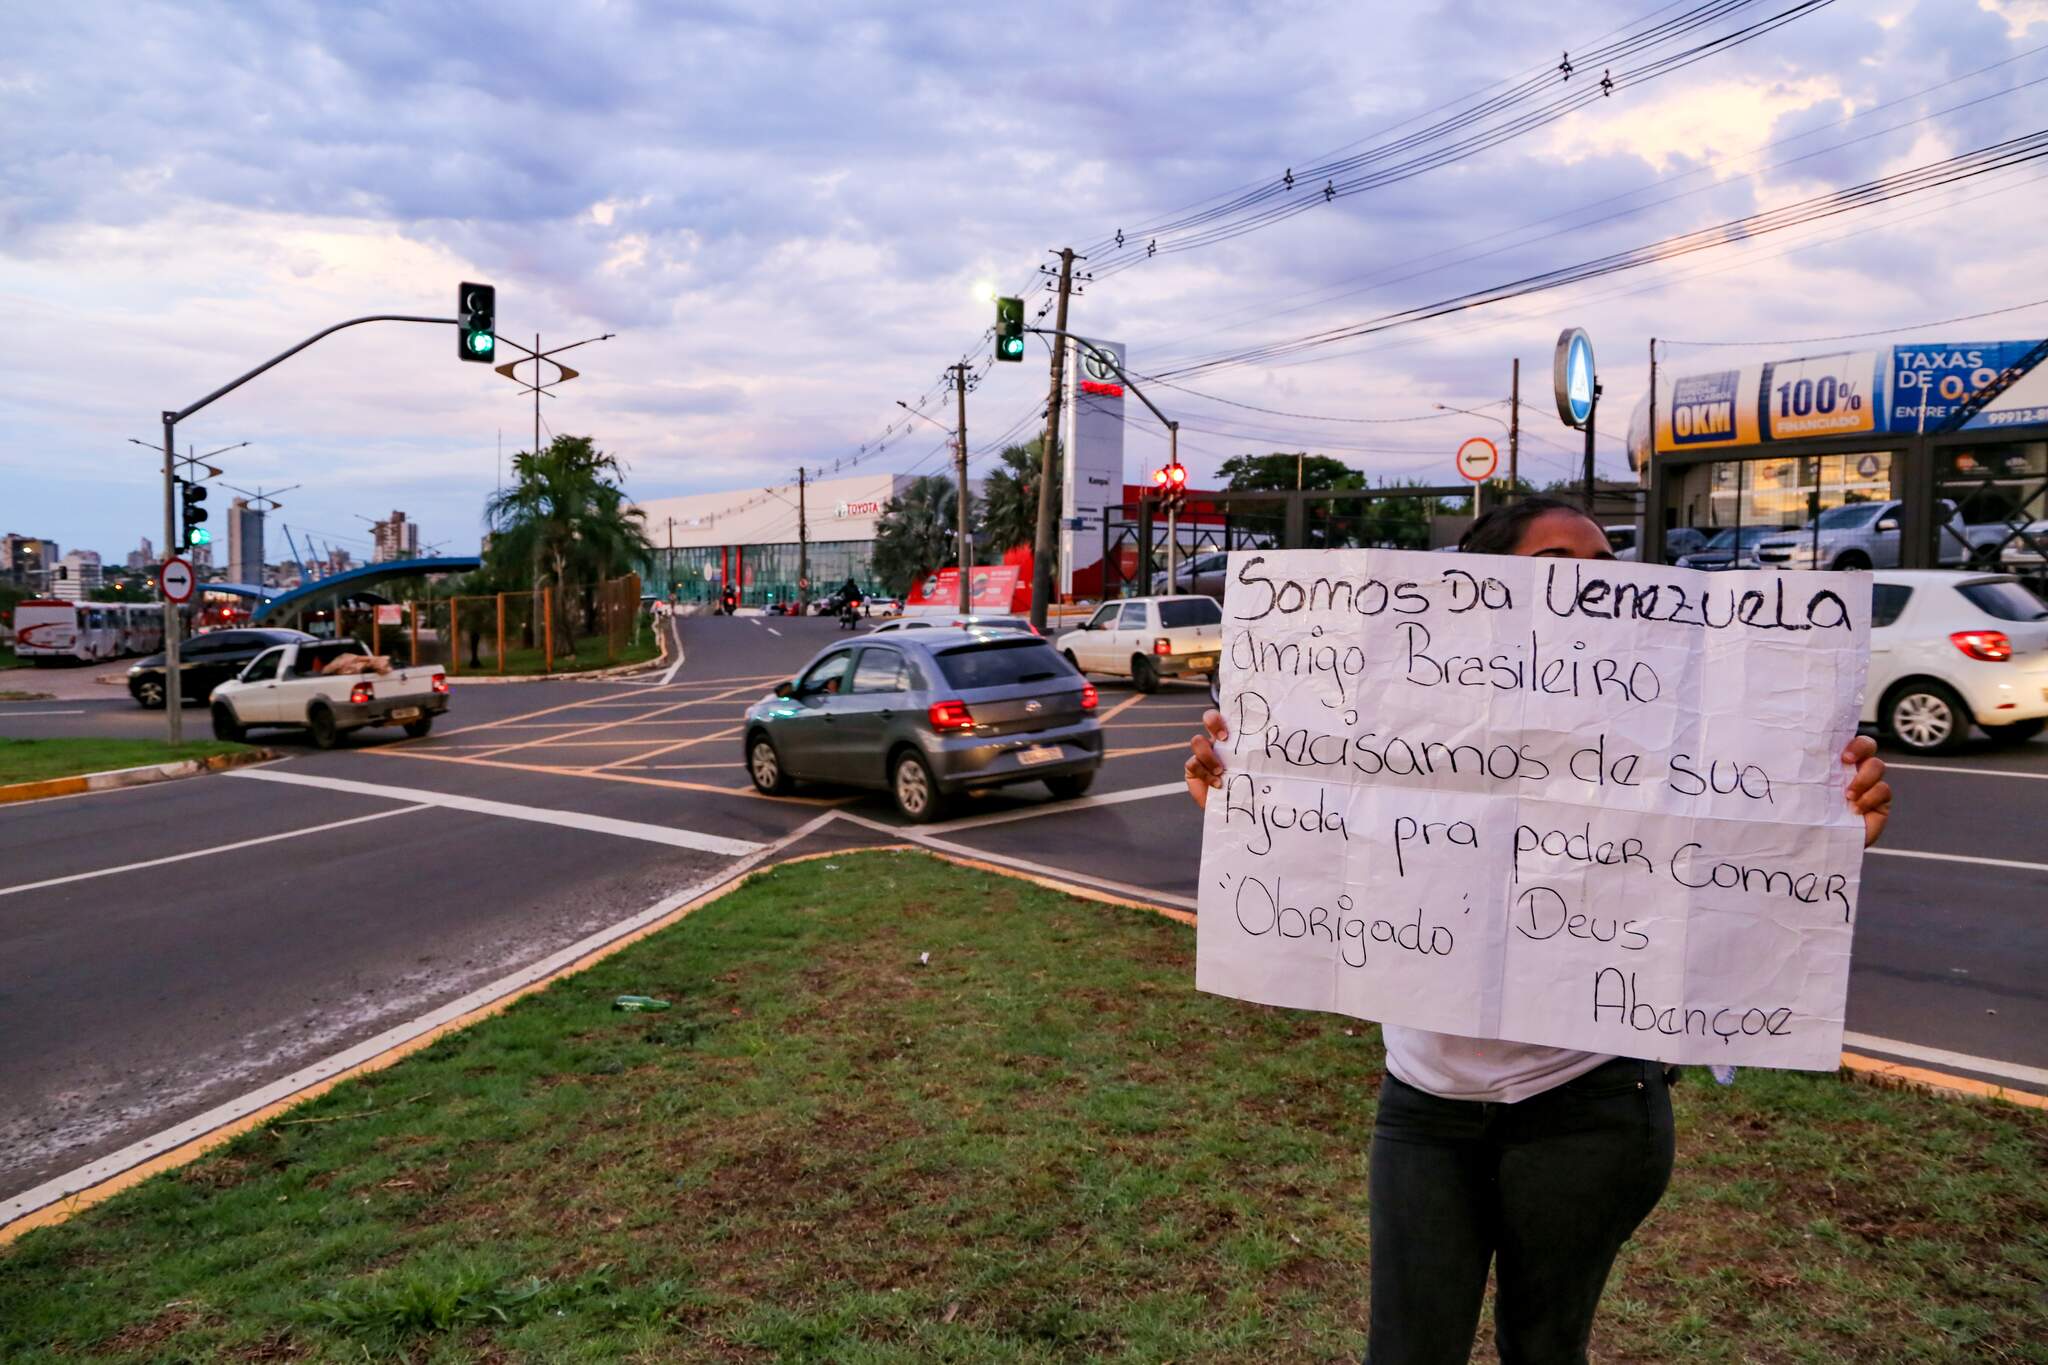 Somos Da Venezuela
amigo Brasileiro
Precisamos de sua
Ajuda pra poder Comer
"Obrigado" Deus
Abençoe
TOYOTA
TOYOTA
Kampai
0KM
100%
FINANCIADO
TAXAS
DE 0,9
ENTRE
99912-8